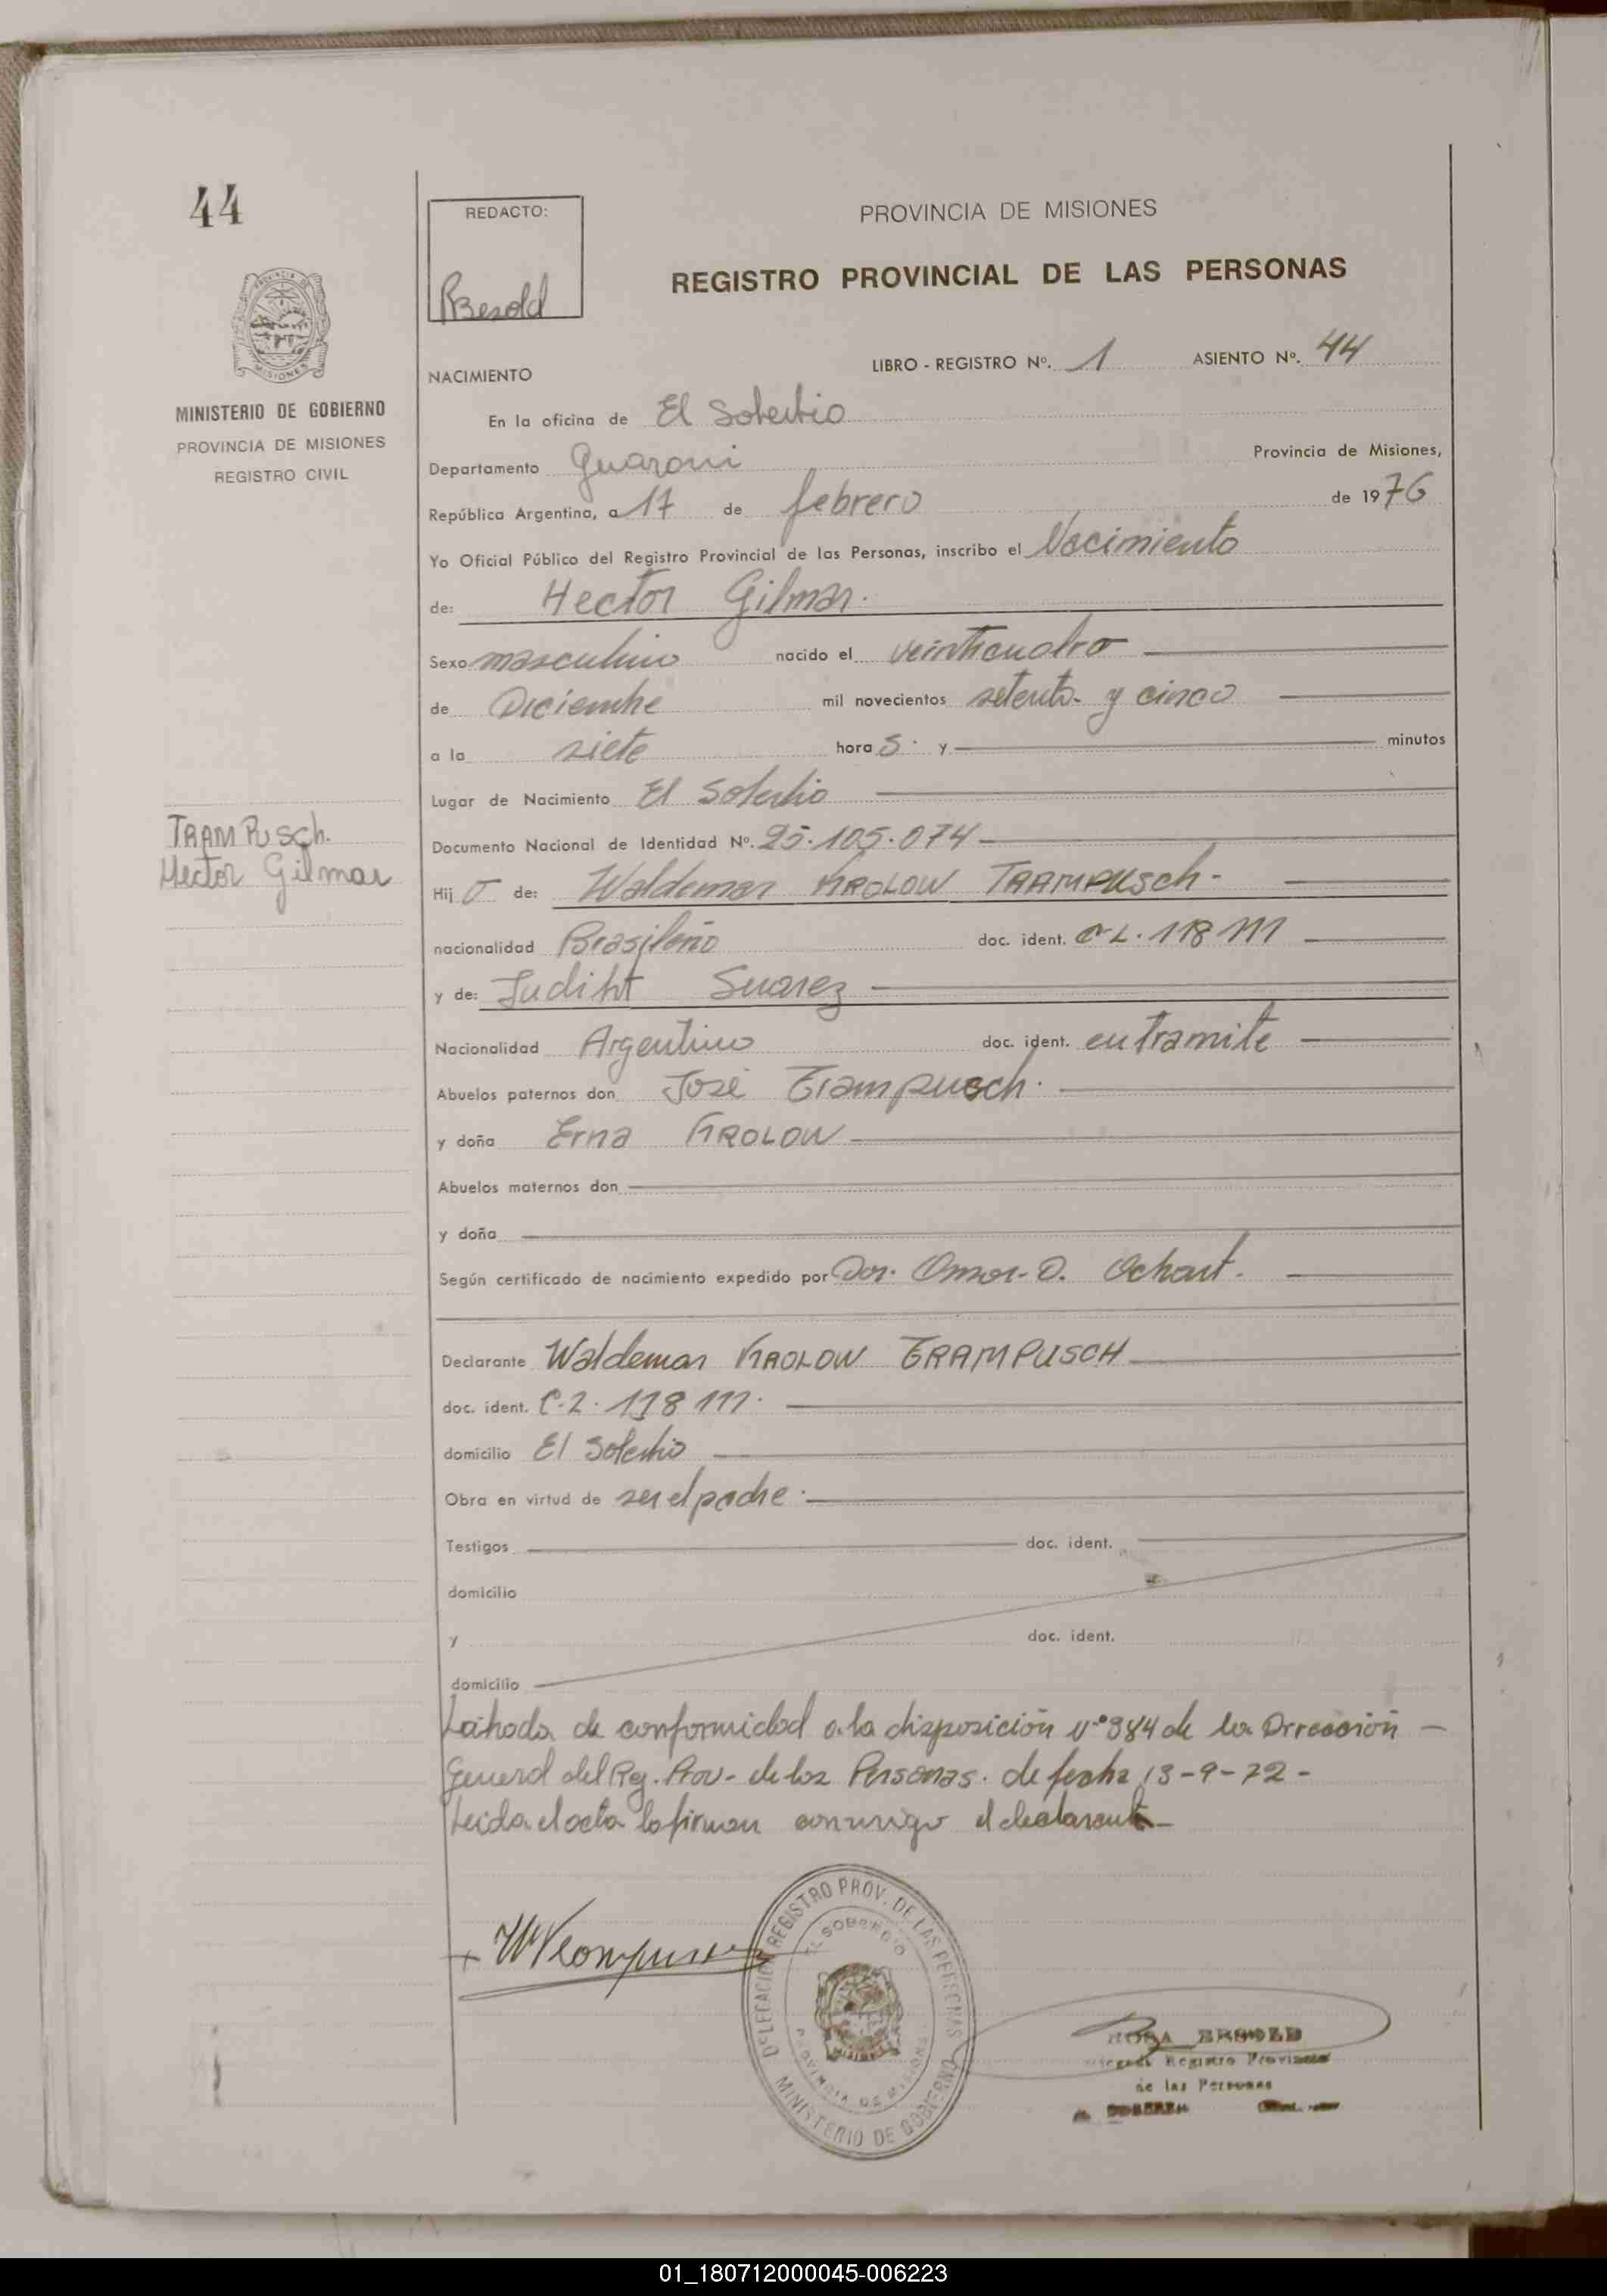 44
REDACTO:
RBesold
PROVINCIA DE MISIONES
REGISTRO PROVINCIAL DE LAS PERSONAS
MINISTERIO DE GOBIERNO
PROVINCIA DE MISIONES
REGISTRO CIVIL
NACIMIENTO
LIBRO - REGISTRO Nº. 1 ASIENTO Nº. 44
En la oficina de El Soberbio
Departamento Guaroni Provincia de Misiones,
República Argentina, a 17 de febrero de 1976
Yo Oficial Público del Registro Provincial de las Personas, inscribo el Nacimiento
de: Hector Gilmar.
Sexo masculino nacido el veinticuatro
de Diciembre mil novecientos setenta y cinco
a la siete hora s. y minutos
Lugar de Nacimiento El Soberbio
TRAMPUsch.
Hector Gilmar
Documento Nacional de Identidad Nº. 25.105.074
Hij o de: Waldemar KROLOW TRAMPUSch -
nacionalidad Brasileño doc. ident. 118111
y de: Judiht Suarez
Nacionalidad Argentino doc. ident. en tramite
Abuelos paternos don José Trampusch.
y doña Erna KROLOW
Abuelos maternos don
y doña
Según certificado de nacimiento expedido por Dor. Omar - O. Ochart.
Declarante Waldemar KROLOW TRAMPUSCH
doc. ident. C.2. 118111.
domicilio El Soberbio
Obra en virtud de ser el padre.
Testigos doc. ident.
domicilio
y doc. ident.
domicilio
Labrada de conformidad a la disposición nº 384 de la Dirección -
General del Reg. Prov- de las Personas. de fecha 13-9-72 -
Leida el acta la firman conmigo el declarante -
DELEGACION REGISTRO PROV. DE LAS PERSONAS
EL SOBERBIO
PROVINCIA DE MISIONES
MINISTERIO DE GOBIERNO
ROSA BESOLD
Registro Provincial
de las Personas
01_180712000045-006223